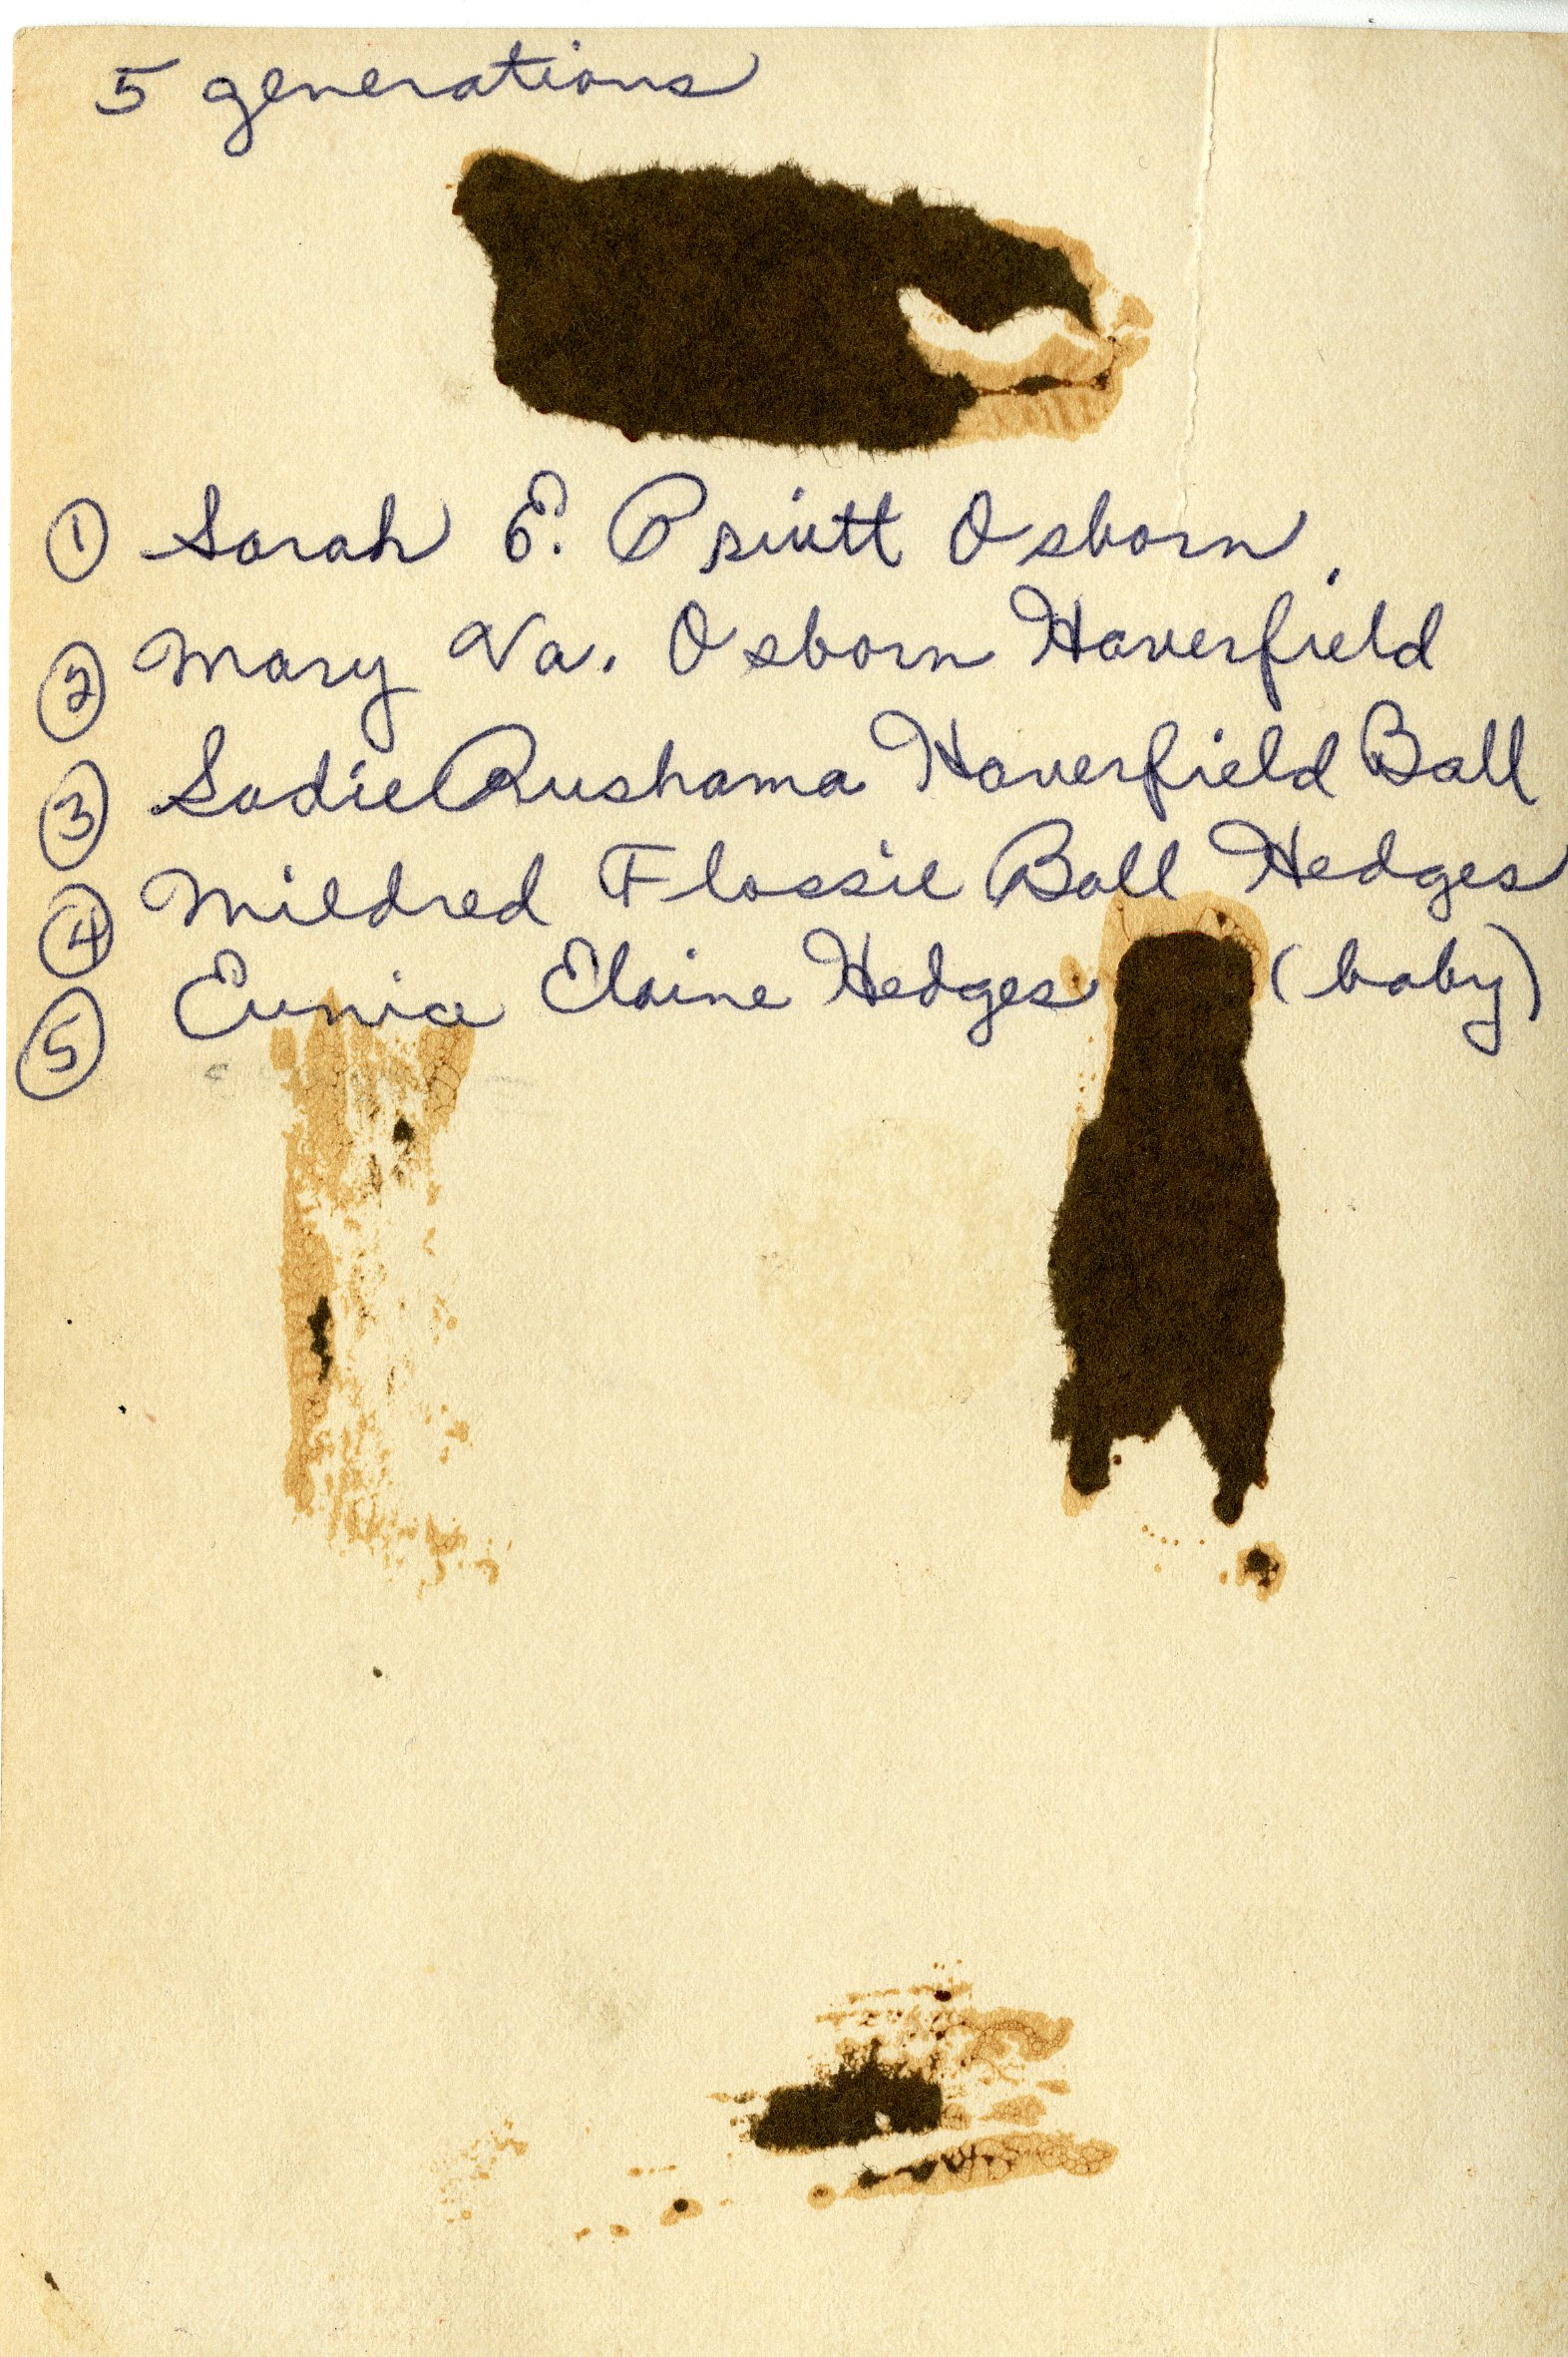 5 generations
① Sarah E. Priutt Osborn.
② Mary Va. Osborn Haverfield
③ Sadie Rushama Haverfield Ball
④ Mildred Flossie Ball Hedges
⑤ Eunice Elaine Hedges (baby)